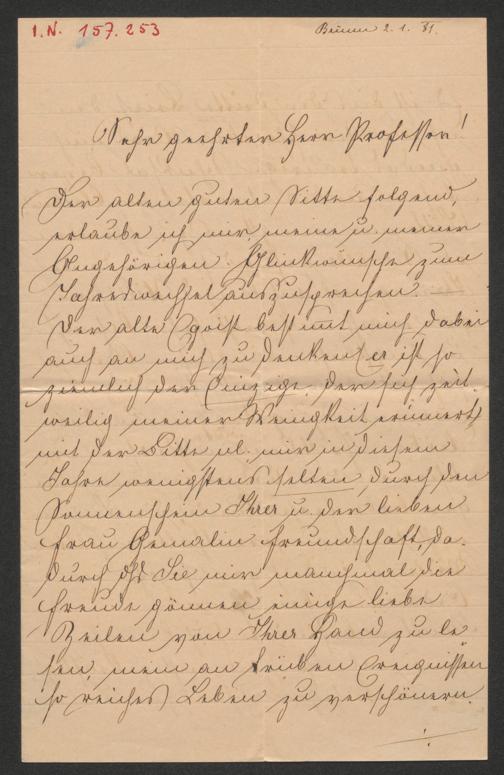 I.N. 157.253
Brünn 2. 1. 81.
Sehr geehrter Herr Professor!
Der alten guten Sitte folgend,
erlaube ich mir, meine u. meiner
Angehörigen Glückwünsche zum
Jahreswechsel auszusprechen. —
Der alte Egoist bestimmt mich dabei
auch an mich zu denken (er ist so
ziemlich der Einzige, der sich zeit-
weilig meiner Wenigkeit erinnert)
mit der Bitte nl. mir in diesem
Jahre wenigstens selten durch den
Sonnenschein Ihrer u. der lieben
Frau Gemalin Freundschaft, da-
durch dß Sie mir manchmal die
Freude gönnen einige liebe
Zeilen von Ihrer Hand zu le-
sen, mein an trüben Ereignissen
so reiches Leben zu verschönern.
./.